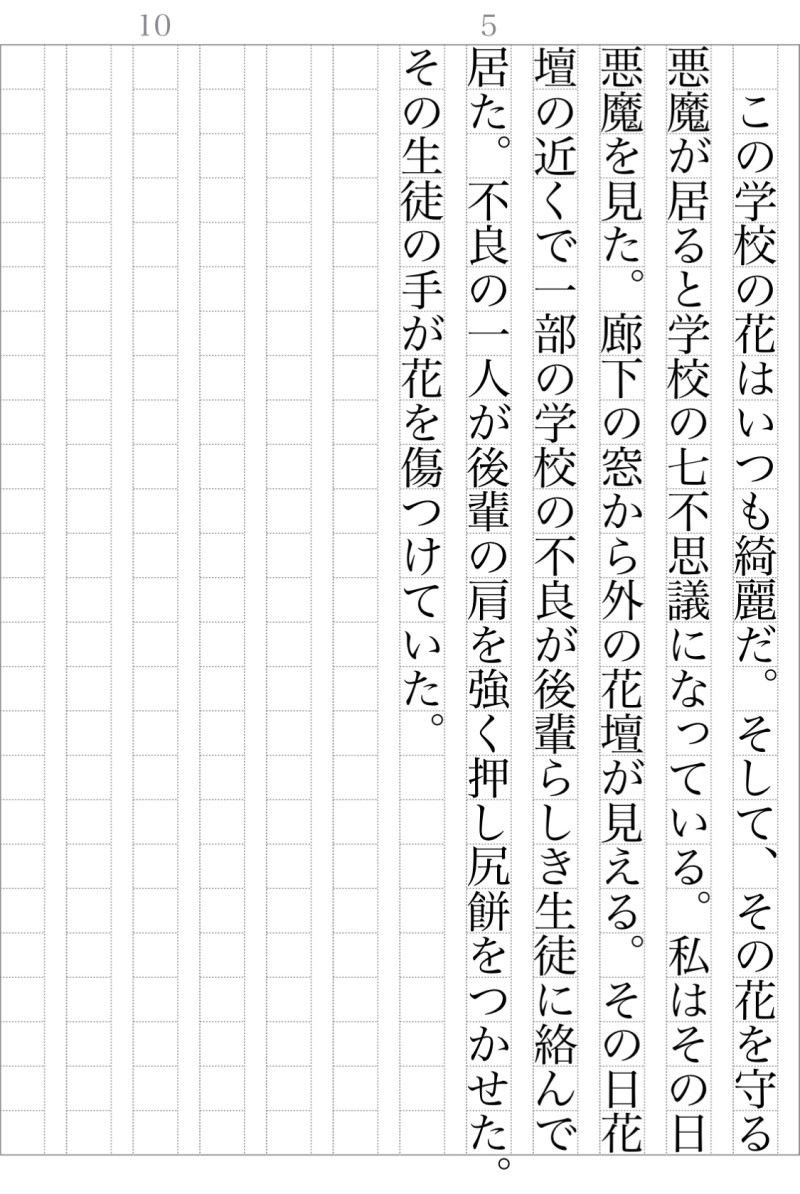 10
5
　この学校の花はいつも綺麗だ。そして、その花を守る
悪魔が居ると学校の七不思議になっている。私はその日
悪魔を見た。廊下の窓から外の花壇が見える。その日花
壇の近くで一部の学校の不良が後輩らしき生徒に絡んで
居た。不良の一人が後輩の肩を強く押し尻餅をつかせた。
その生徒の手が花を傷つけていた。